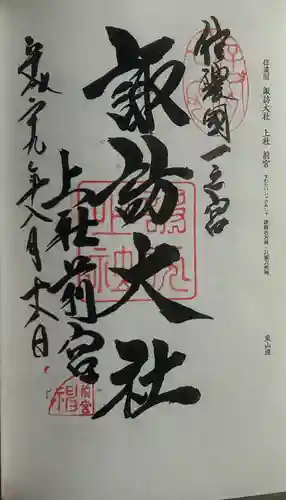 信濃國 諏訪大社 上社 前宮
東山道
信濃國一之宮
諏訪大社
上社前宮
平成廿九年八月十六日